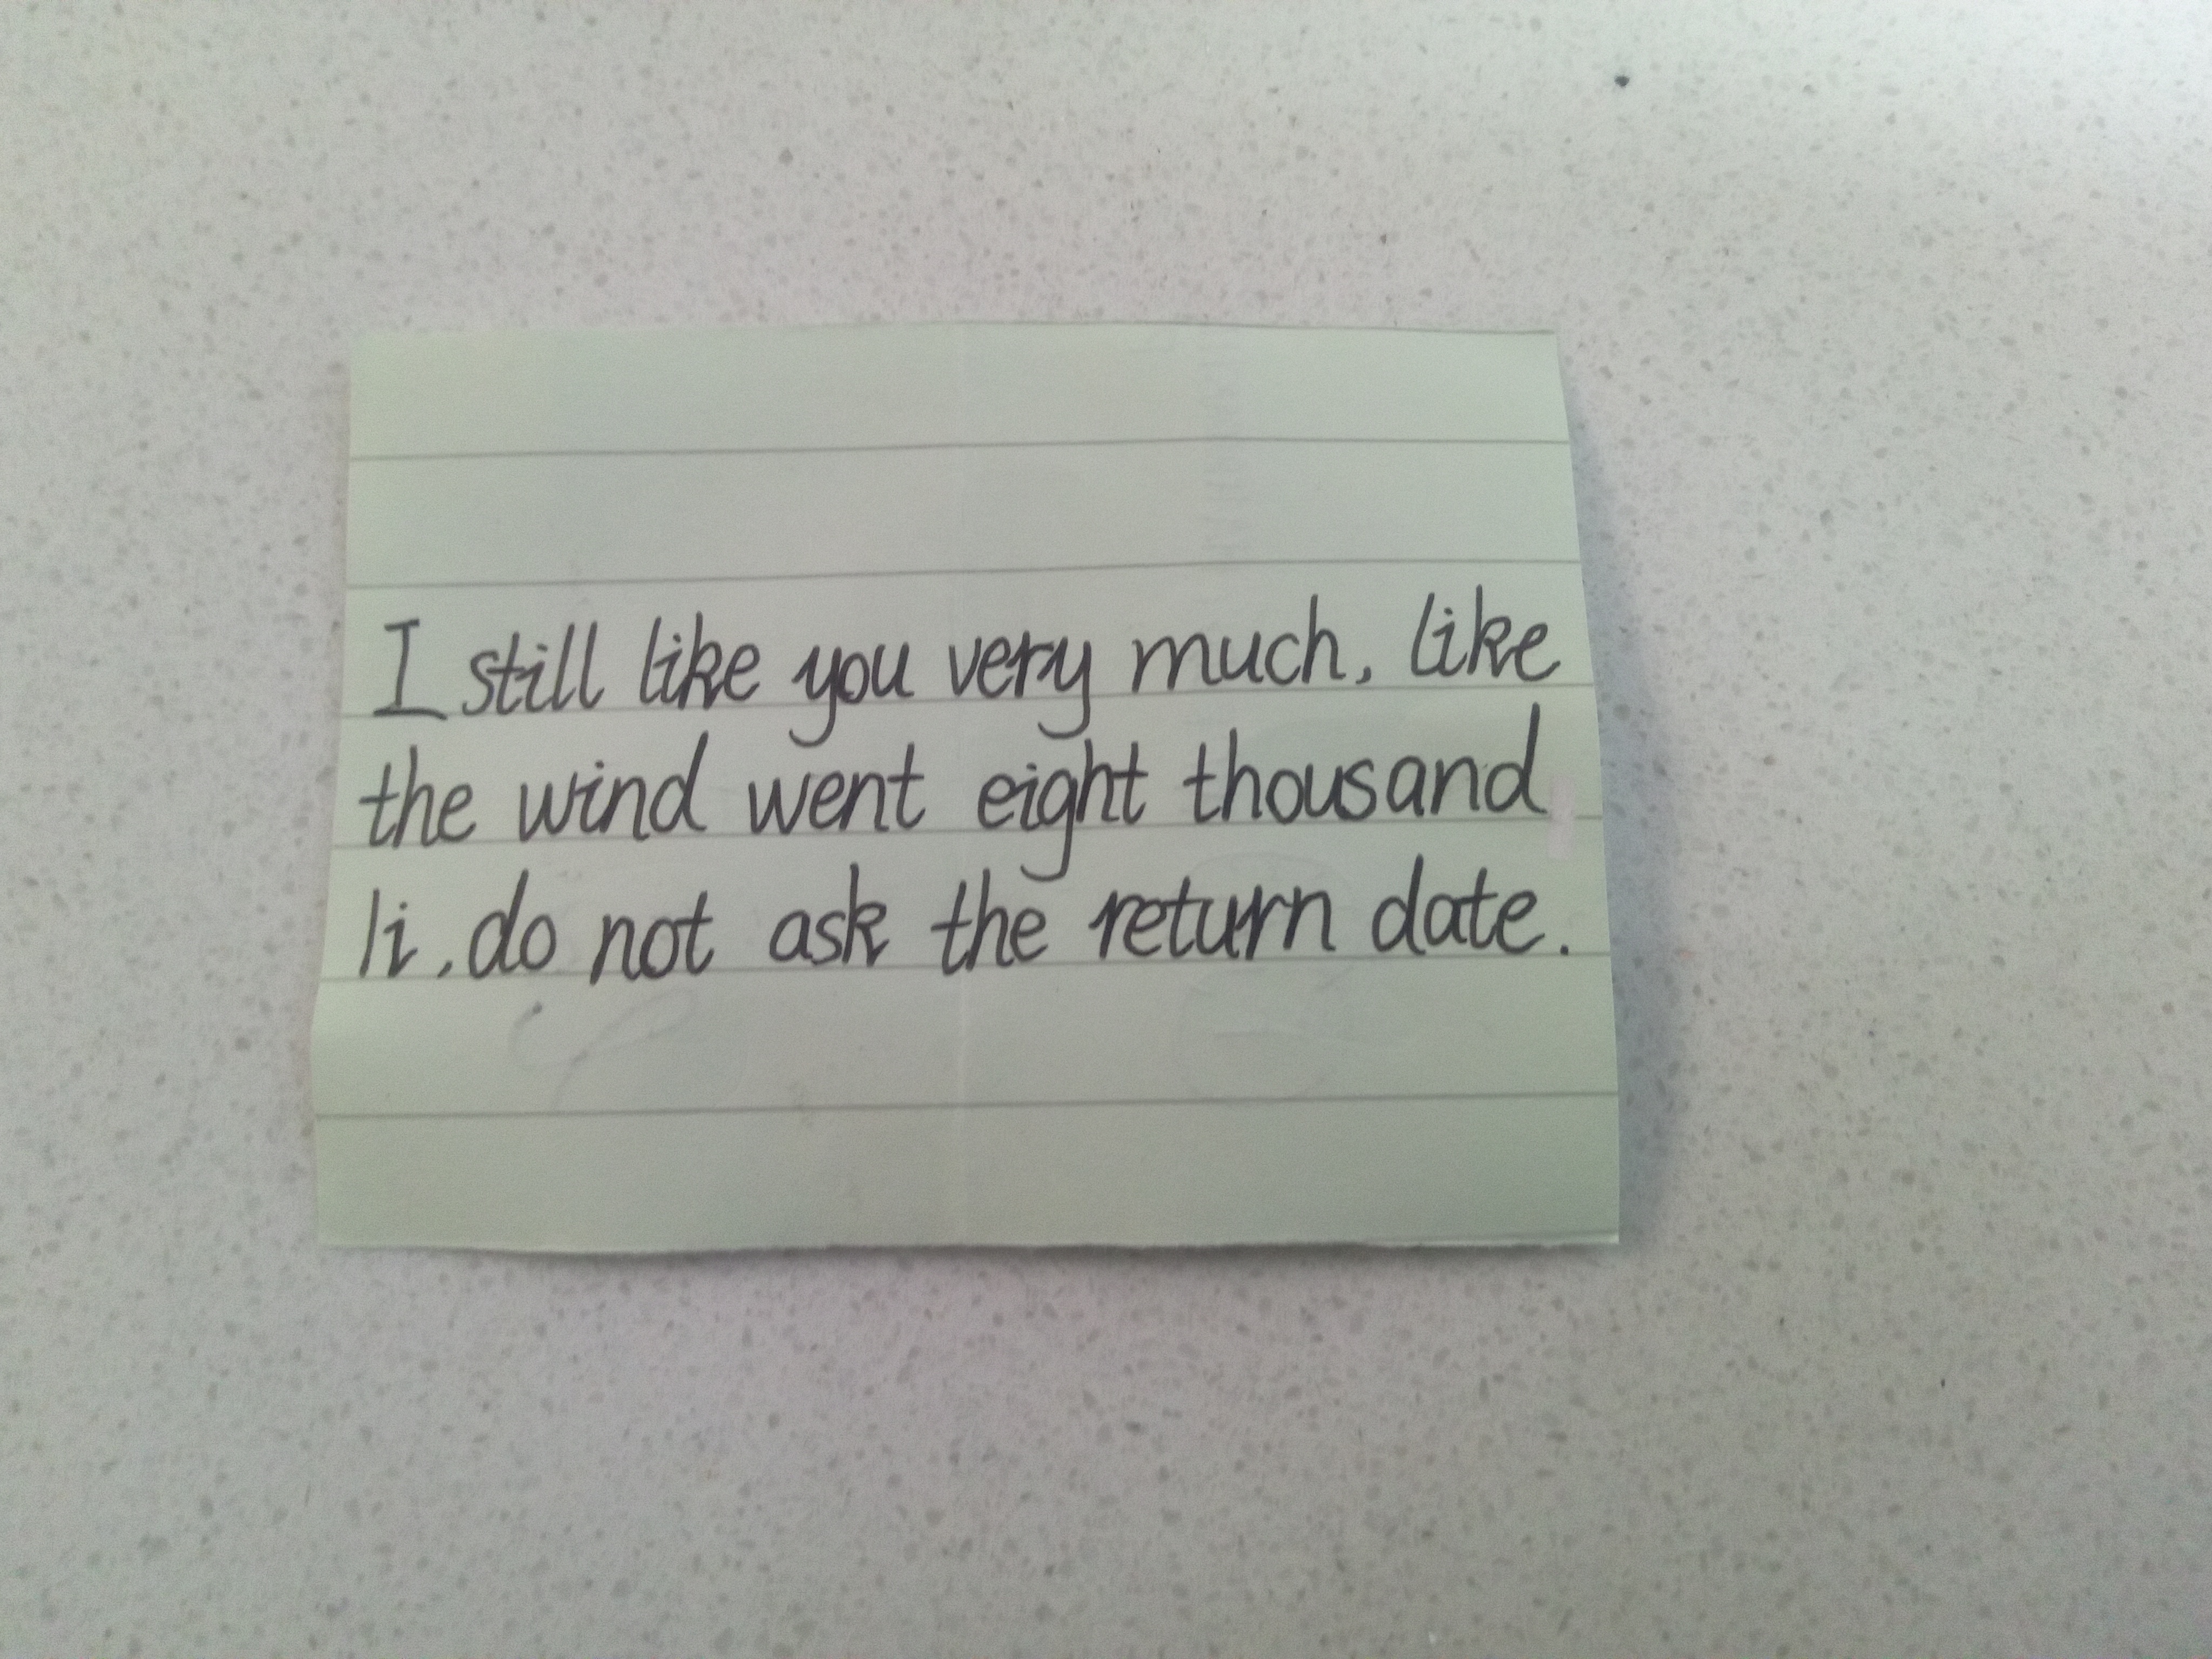 I still like you very much, like
the wind went eight thousand
li, do not ask the return date.